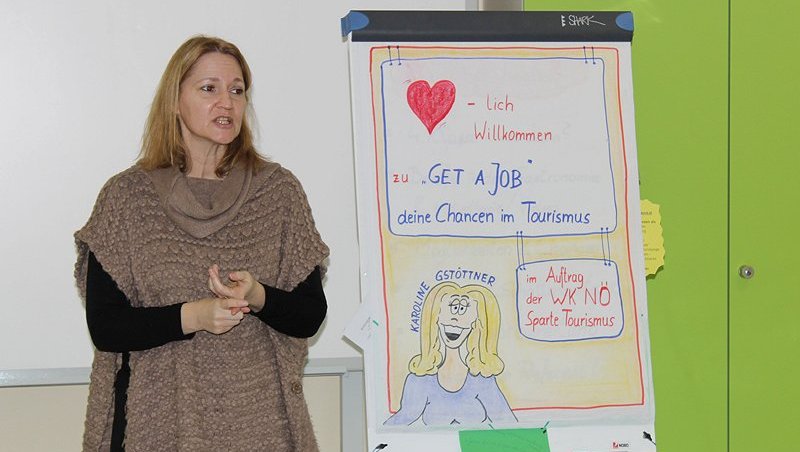 SHARK
- lich
Willkommen
zu „GET A JOB"
deine Chancen im Tourismus
KAROLINE GSTÖTTNER
im Auftrag
der WK NÖ
Sparte Tourismus
NOBO